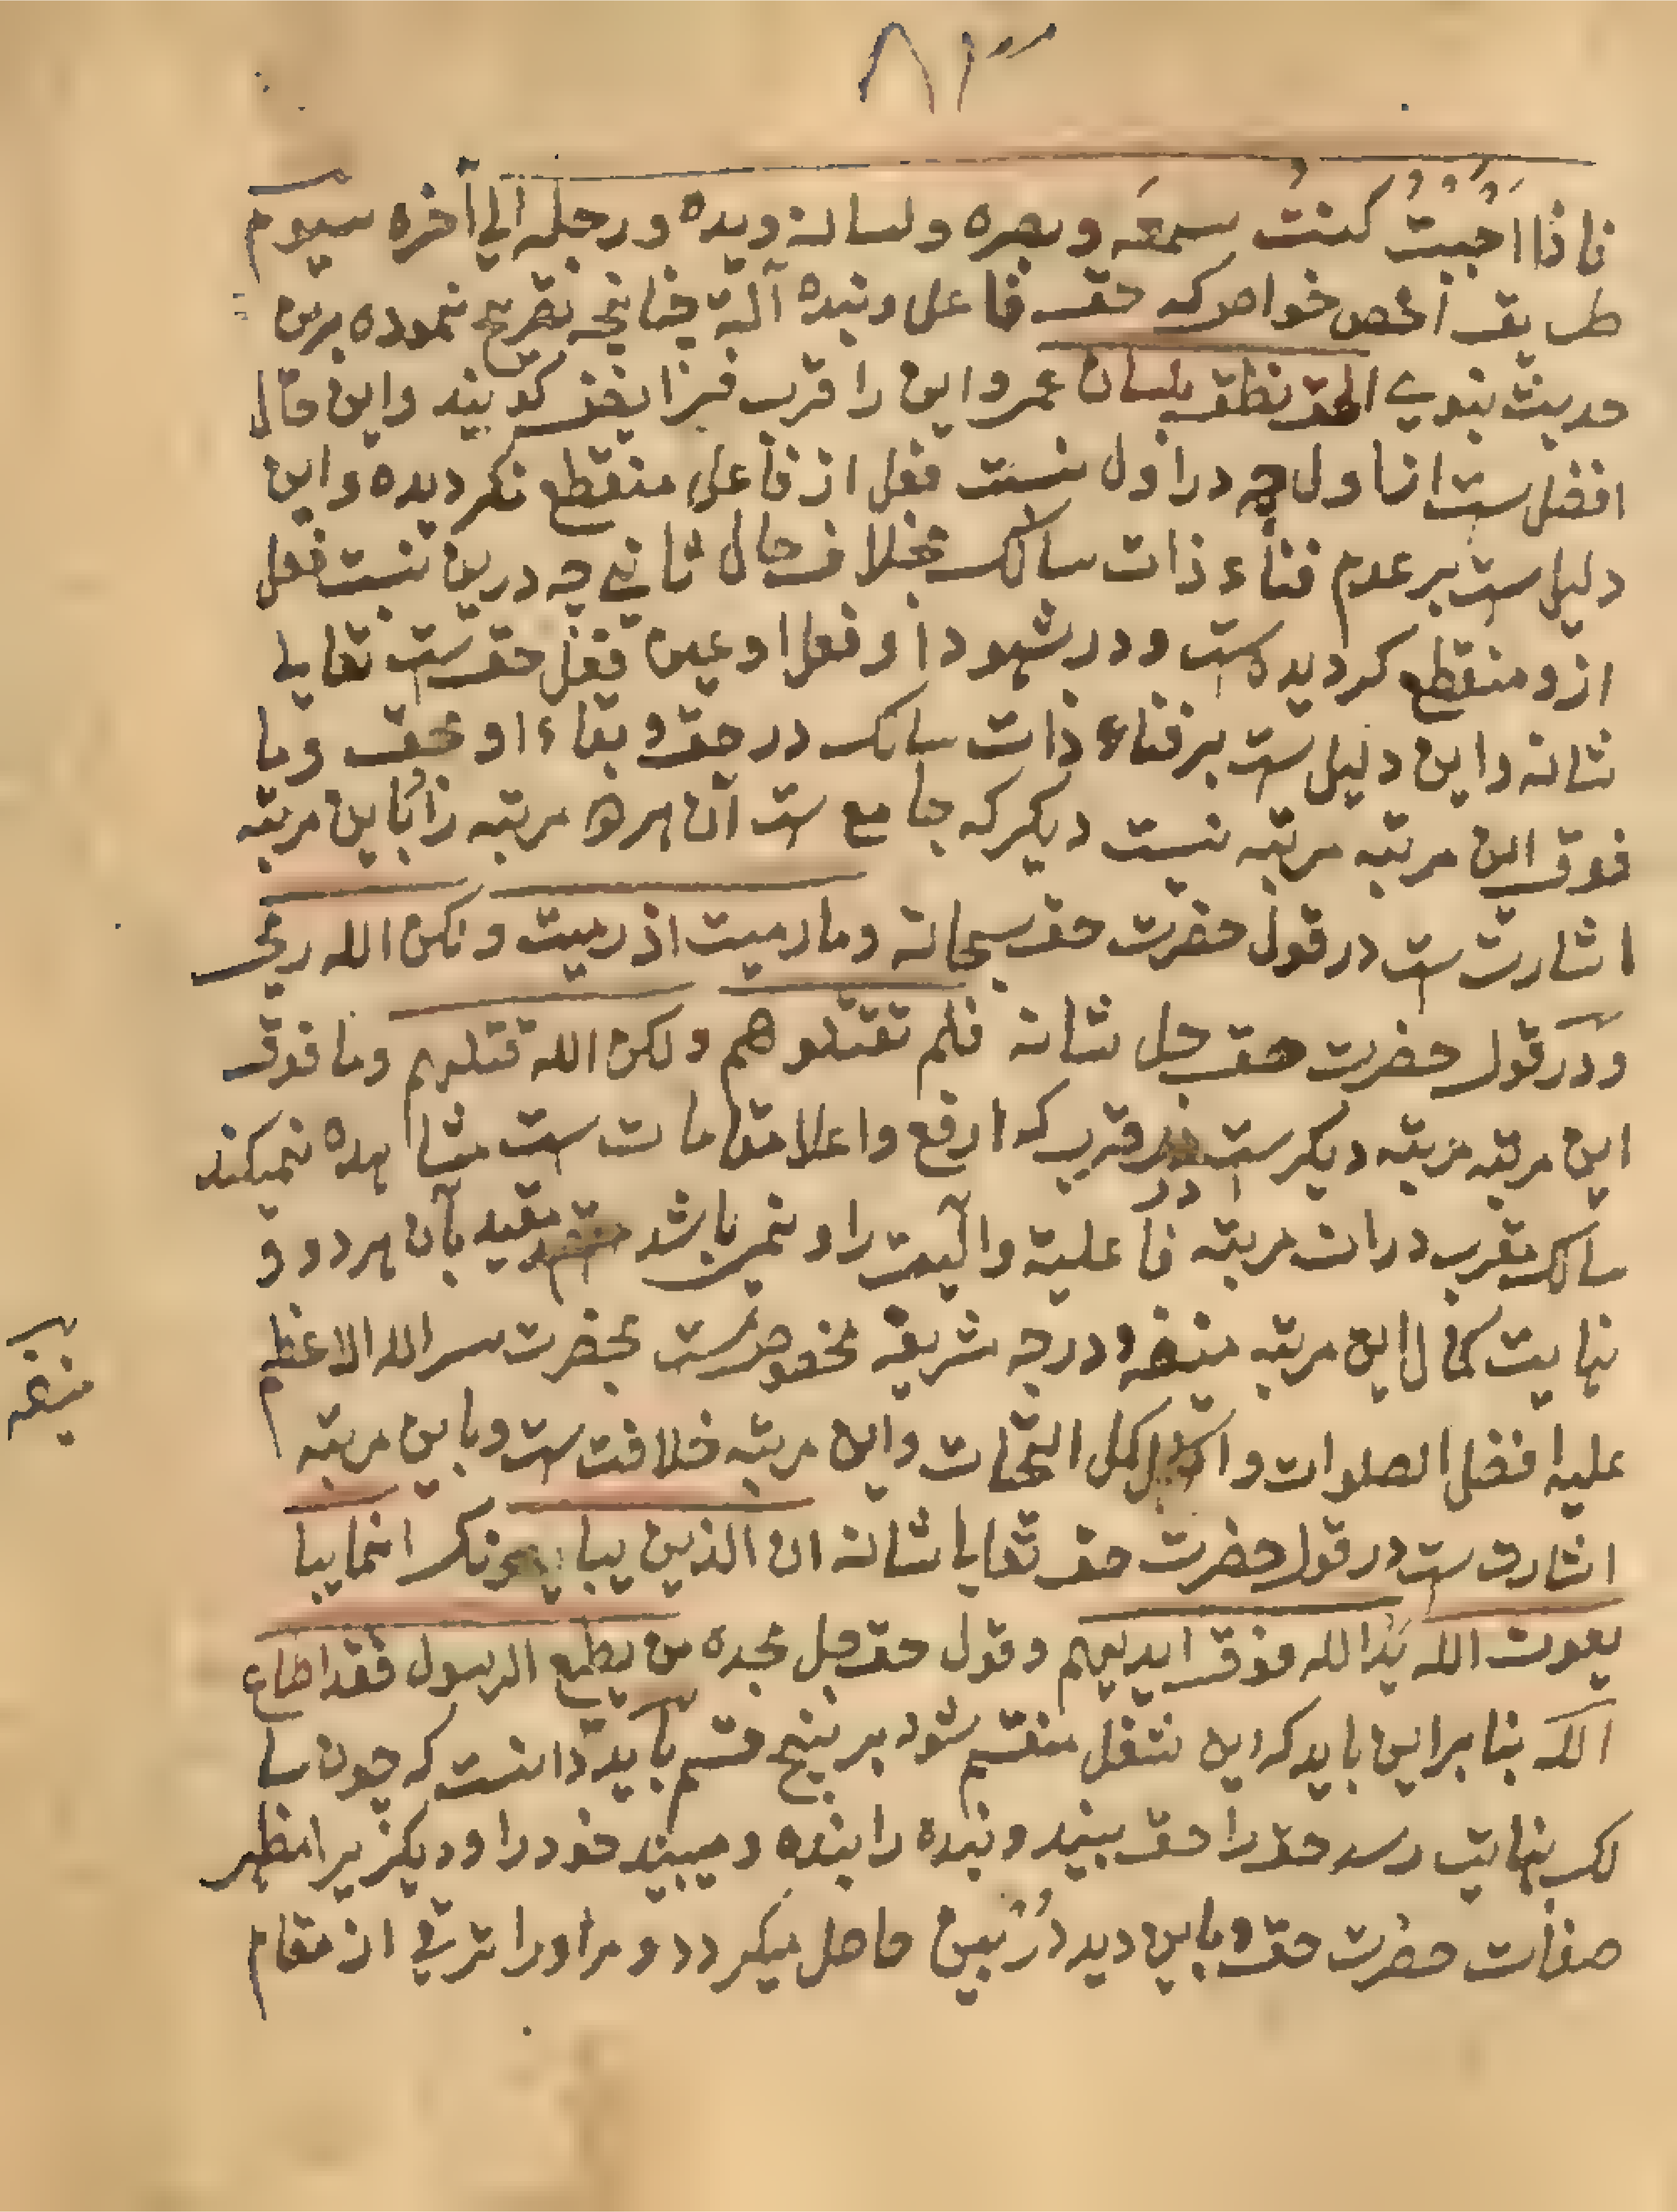 ۸۳
فاذا احببت كنت سمعه و بصره و لسانه ويده و رجله الي آخره سيوم
طريق اخص خواص كه حق فاعل و بنده آلة چنانچه تصريح نموده برين
حديث نبوي الحق ينطق بلسان عمر و اين را قرب فرايض كويند و اين حال
افضل ست از اول چه در اول نسبت فعل از فاعل منقطع نكرديده و اين
دليل ست بر عدم فناء ذات سالك بخلاف حال ثاني چه درين نسبت فعل
ازو منقطع كرديده ست و در شهود او فعل او عين فعل حق ست تعالي
شانه و اين دليل ست بر فناء ذات سالك در حق و بقاء او بحق وما
فوق اين مرتبه مرتبه نيست ديكر كه جامع ست آن هر ه مرتبه را باين مرتبه
اشارت ست در قول حضرت حق سبحانه وما رميت اذ رميت ولكن الله رمي
و در قول حضرت حق جل شانه فلم تقتلوهم ولكن الله قتلهم وما فوق
اين مرتبه مرتبه ديكر ست در قرب كه ارفع و اعلا مقامات ست مشاهده نميكند
سالك مقرب دران مرتبه فاعلية و آليت را و نمي باشد مقيد بآن هر دو و
نهايت كمال اين مرتبه منيفه و درجه شريفه مخصوص ست بحضرت سر الله الاعظم
منيفه
عليه افضل الصلوات و اكمل التحات و اين مرتبه خلافت ست و باين مرتبه
اشارت ست در قول حضرت حق تعالي شانه ان الذين يبايعونك انما يبا
يعون الله يد الله فوق ايديهم و قول حق جل مجده من يطع الرسول فقد اطاع
الله بنا برين بايد كه اين شغل منقسم شود بر پنج قسم بايد دانست كه چون سا
لك بنهايت رسد حق را حق بيند و بنده را بنده و ميبيند خود را و ديكريرا مظهر
صفات حضرت حق و باين ديد دُرّبين حاصل ميكردد و مر او را ترقي از مقام